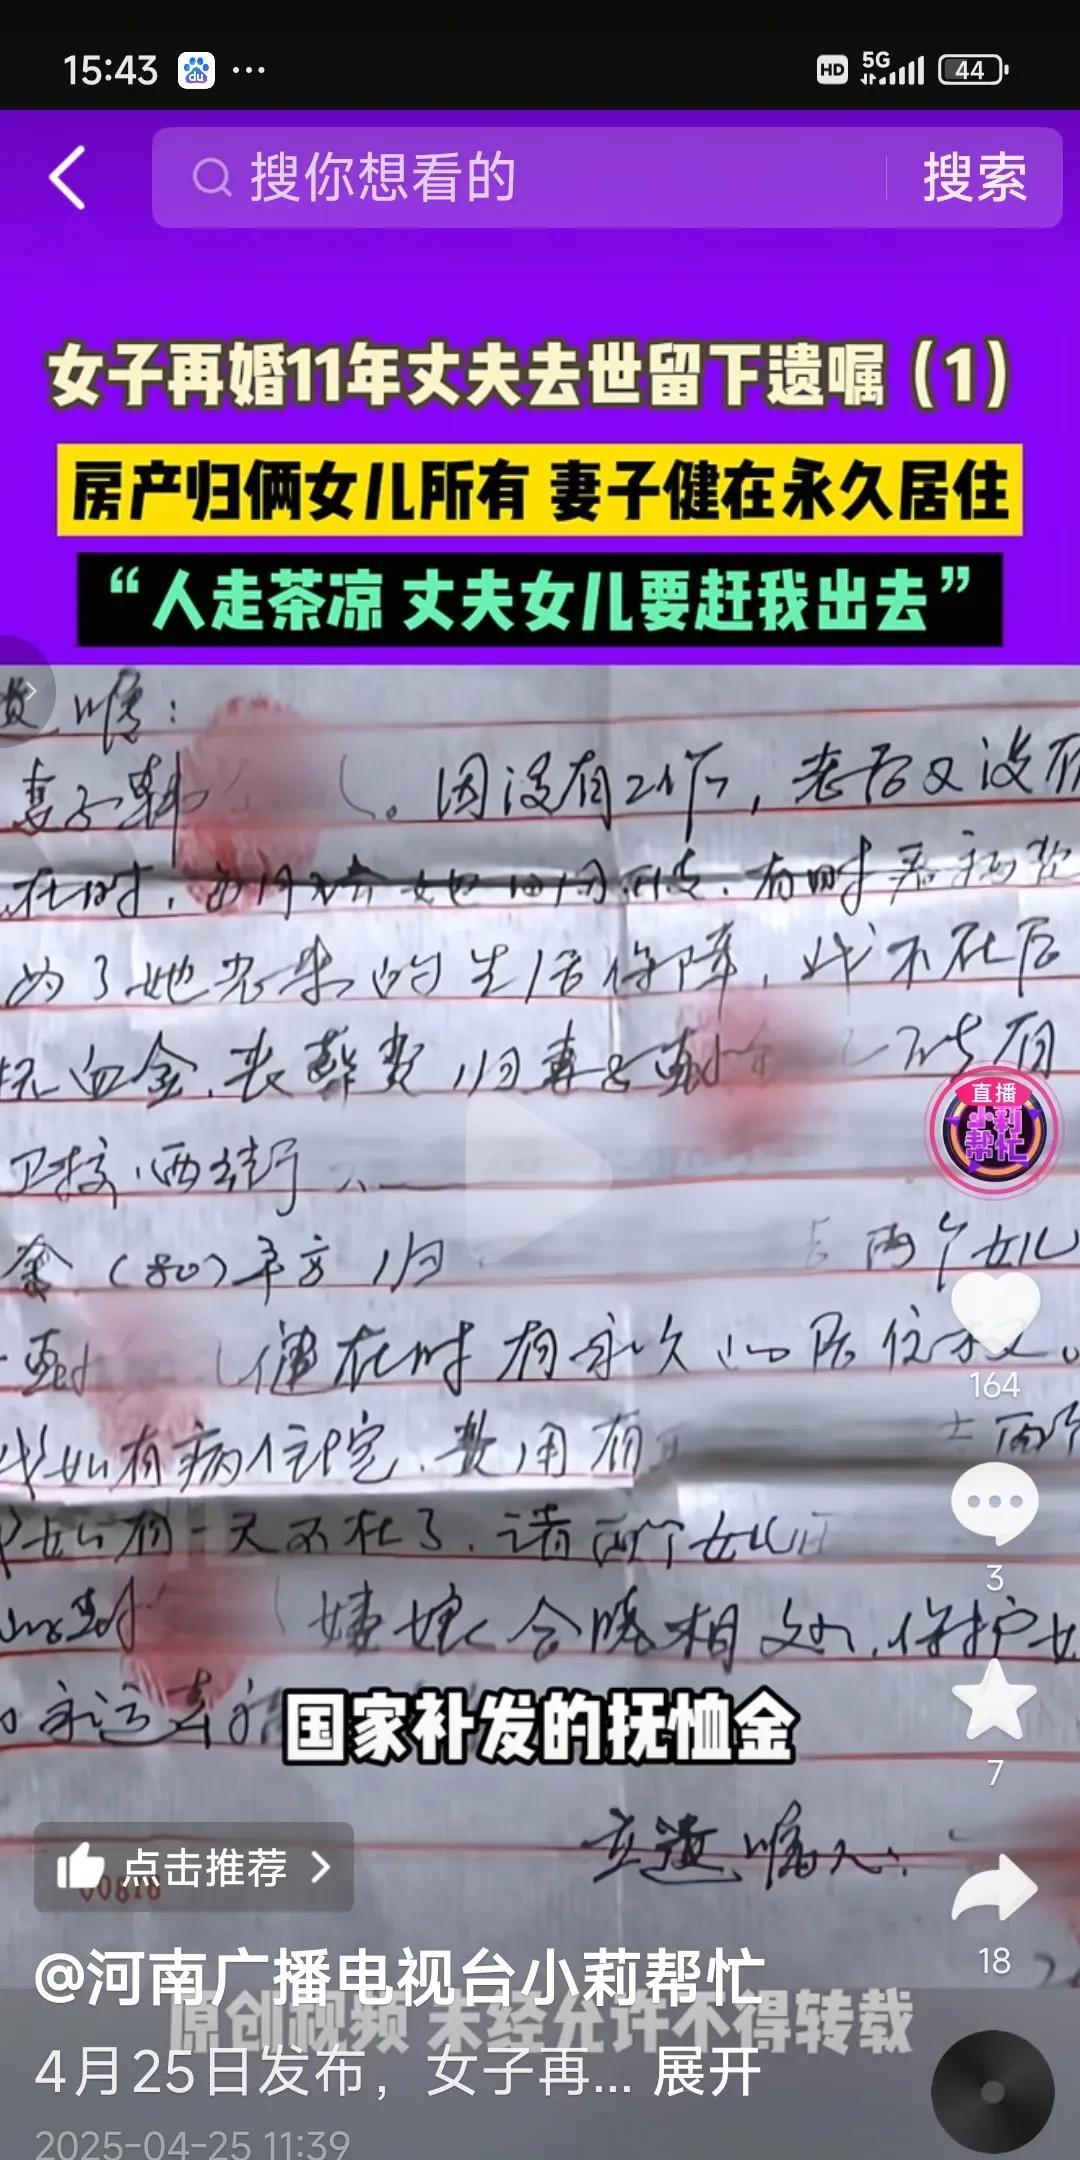 15:43
du
...
HD 5G 44
搜你想看的
搜索
女子再婚11年丈夫去世留下遗嘱（1）
房产归俩女儿所有 妻子健在永久居住
“人走茶凉 丈夫女儿要赶我出去”
遗嘱：
妻子韩 。因没有工作，老后又没有
在时，每月给她 有时
为了她老来的生活保障，我不在后
抚恤金.丧葬费归妻子韩 所有
直播
小莉帮忙
套（80）平方归 两个女儿
韩 健在时有永久的居住权。
164
我如有病住院.费用有 两个
我如有一天不在了.请两个女儿
3
韩 姨娘合睦相处.保护她
永远幸福
国家补发的抚恤金
7
立遗嘱人：
点击推荐
00818
18
@河南广播电视台小莉帮忙
原创视频 未经允许不得转载
4月25日发布，女子再... 展开
2025-04-25 11:39